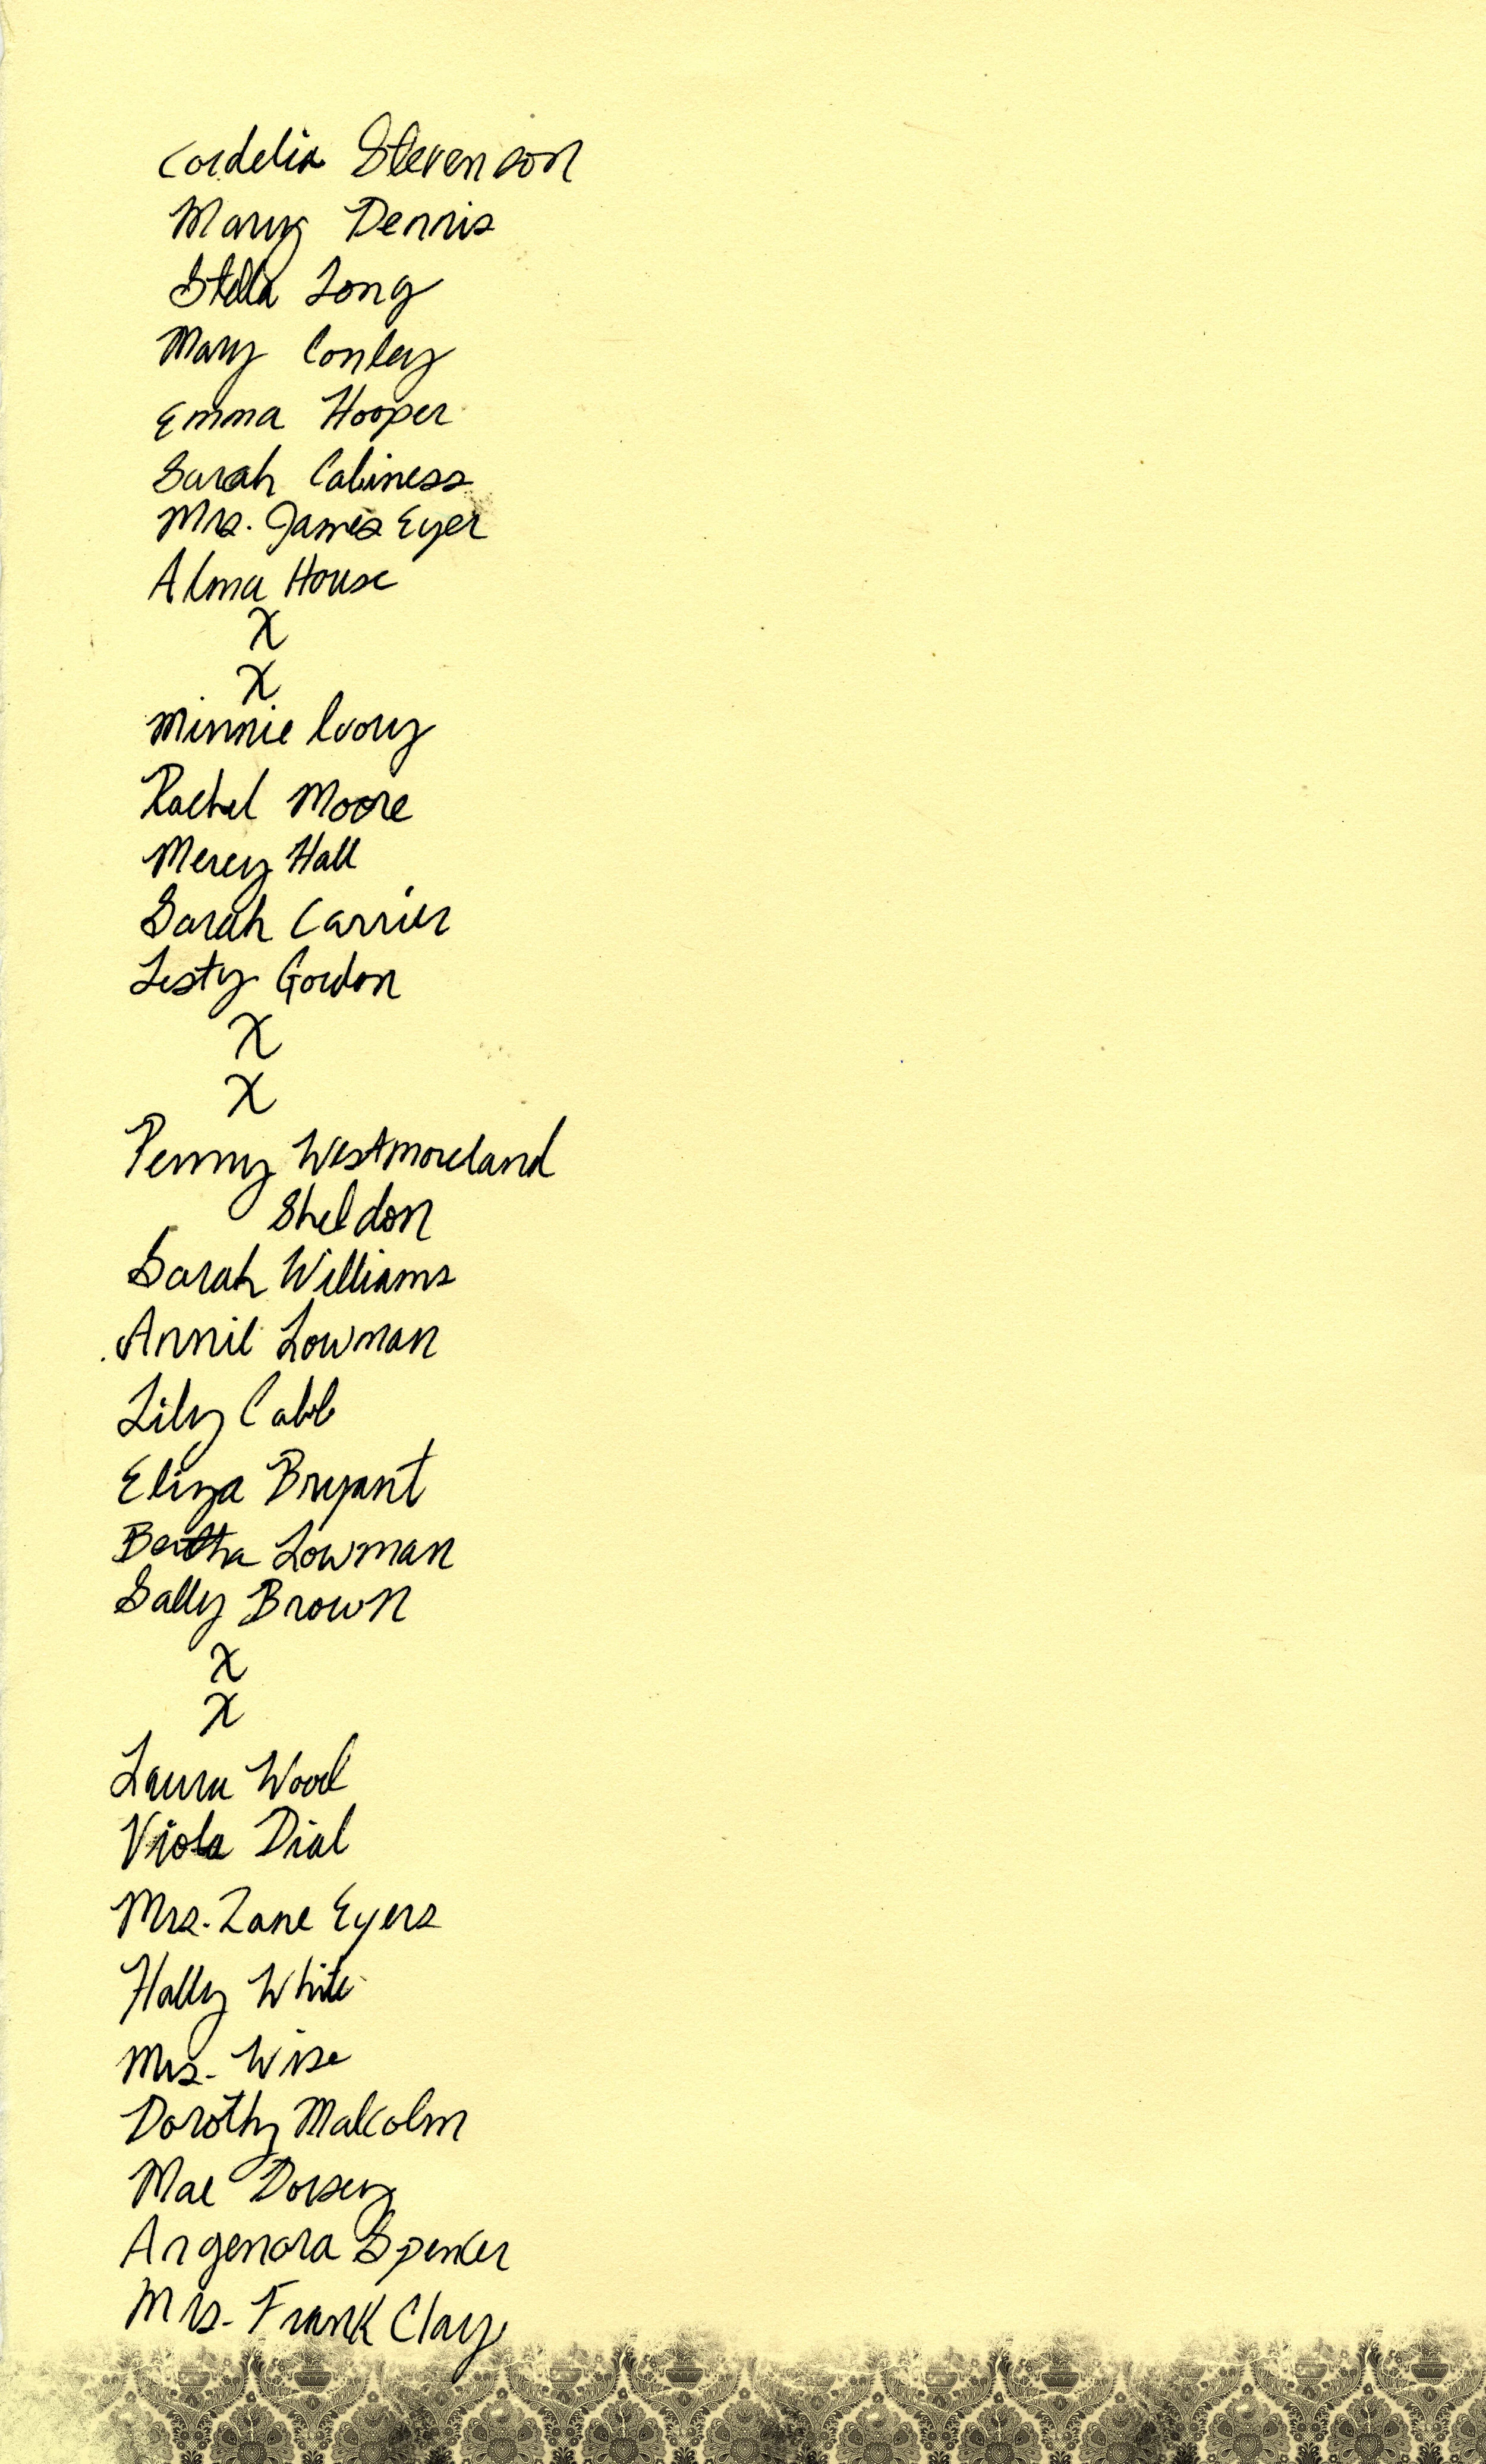 Cordelia Stevenson
Mary Dennis
Stella Long
Mary Conley
Emma Hooper
Sarah Cabiness
Mrs. James Eyer
Alma House
X
X
Minnie Ivory
Rachel Moore
Mercy Hall
Sarah Carrier
Lesty Gordon
X
X
Penny Westmoreland
Sheldon
Sarah Williams
Annie Lowman
Lily Cabb
Eliza Bryant
Bertha Lowman
Sally Brown
X
X
Laura Wood
Viola Dial
Mrs. Zane Eyers
Hally White
Mrs. Wise
Dorothy Malcolm
Mae Dorsey
Angenora Spencer
Mrs. Frank Clay